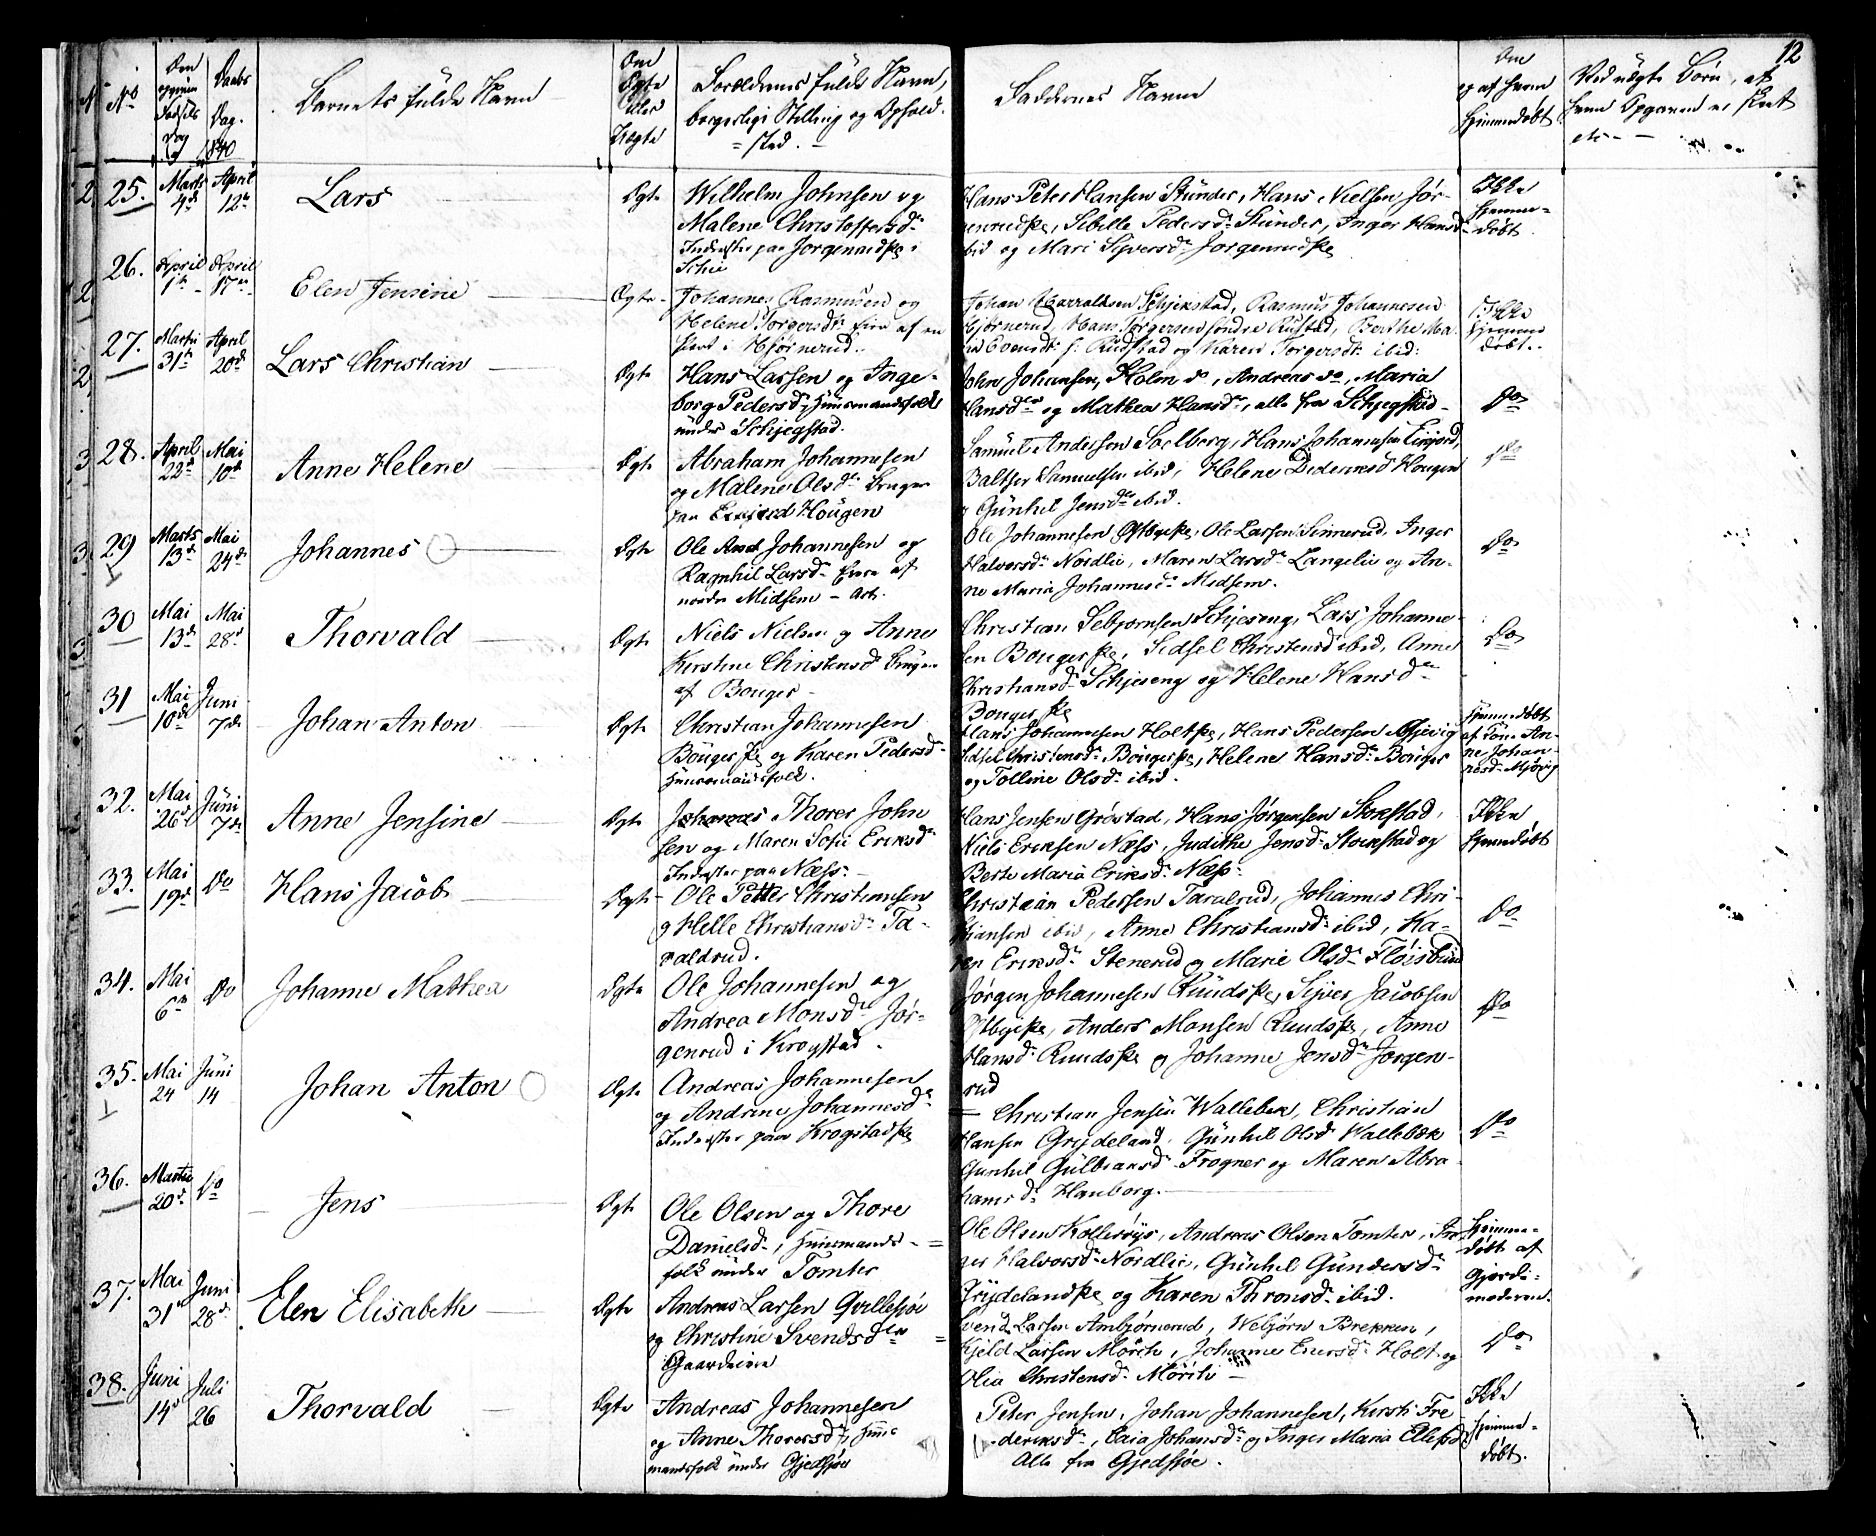 12
No
Den
Daabs
Dag.
1840
Barnets fulde Navn
Om
Ægte
eller
Uægte
Forældrenes fulde Navn,
borgerlige Stilling og Ophold-
sted.
Faddernes Navne
Om
og af hvem
hjemmedøbt
Ved uægte Børn, af
hvem Opgaven er skeet
25. Marts 4de April 12te
Lars
Ægte
Wilhelm Johnsen og
Malene Christoffersdr
Inderster paa Jørgenrudske i
Schie
Hans Peter Hansen Stunder, Hans Nielsen Jør-
genrudske, Sibille Pedersdr Stunder, Inger Hansd
ibid og Mari Siversdr Jørgenrudske
Ikke
hjemme-
døbt
26. April 1te April 17de
Elen Jensine
Ægte
Johannes Rasmusen og
Helene Torgersdr Eier af en
i Hjørnerud
Johan Harraldsen Schjekstad, Rasmus Johannesen
Hjørnerud, Hans Jørgersen søndre Rustad, Berthe Ma-
Evensdr s: Rudstad og Karen Torgersdr ibid:
Ikke
hjemme
døbt.
27. Marts 31te April 20de
Lars Christian
Ægte
Hans Larsen og Inge-
borg Pedersdr, Huusmandsfolk
under Schjegstad.
John Johansen, Holm do, Andreas do, Maria
Hansdr og Mathea Hansdr, alle fra Schjegstad
Do
28. April 22de Mai 10de
Anne Helene
Ægte
Abraham Johannesen
og Malene Olsdr Bruger
paa Hougen
Samuel Andersen Solberg, Hans Johannesen
Baltser Samuelsen ibid, Helene Dideriksd Hougen
og Gunhil Jensdr ibid.
Do
29 Marts 13de Mai 24de
Johannes
Ægte
Ole Johannesen og
Ragnhil Larsdr Eiere af
nordre Midsem
Ole Johannesen Østbyeske, Ole Larsen Sinnerud, Inger
Halvorsdr Nordlie, Maren Larsdr Langelie og An-
ne Maria Johannesdr Midsem.
Do
30 Mai 13de Mai 28de
Thorvald
Ægte
Niels Nielsen og Anne
Kirstine Christensdr Bruger
af Bouger
Christian Sebjørnsen Schjeseng, Lars Johanne-
sen Bougerske, Sidsel Christensd ibid, Anne
Christiansdr Schjeseng og Helene Hansdr
Bougerske
Do
31 Mai 10de Juni 7de
Johan Anton
Ægte
Christian Johannesen
Bougerske og Karen Pedersdr
Huusmandsfolk.
Hans Johannesen Holtske, Hans Pedersen Gjevig
Sidsel Christensdr Bougerske, Helene Hansdr Bouger
og Tolline Olsdr ibid.
Hjemmedøbt
af An-
ne Johan-
nesdr
32. Mai 26de Juni 7de
Anne Jensine
Ægte
Thorer John
sen og Maren Sofie Eriksdr
Inderster paa Næss.
Hans Jensen Grøstad, Hans Jørgensen Stokstad,
Niels Eriksen Næss, Judithe Jensdr Stokstad og
Berte Maria Eriksdr Næss.
Ikke
hjemmedøbt
33. Mai 19de Do
Hans Jacob
Ægte
Ole Petter Christiansen
og Helle Christiansdr Ta-
raldrud.
Christian Pedersen Taralrud, Johannes Chri-
stiansen ibid, Anne Christiansdr ibid, Ka-
ren Eriksdr Stenerud og Marie Olsdr Fløisbund
Do
34. Mai 6te Do
Johanne Mathea
Ægte
Ole Johannesen og
Andrea Monsdr Jør-
genrud i Krogstad.
Jørgen Johannesen Ruudske, Siver Jacobsen
Østbyeske, Anders Monsen Ruudske, Anne
Hansdr Ruudske og Johanne Jensdr Jørgen-
rud
Do
35. Mai 24 Juni 14
Johan Anton
Ægte
Andreas Johannesen
og Andrine Johannesdr
Inderster paa Krogstadske
Christian Jensen Wallebek, Christian
Hansen Grydeland, Gunhil Olsdr Wallebæk
Gunhil Gulbransdr Frogner og Maren Abra-
hamsdr Hauborg.
Do
36. Martii 20de Do
Jens
Ægte
Ole Olsen og Thore
Danielsdr, Huusmands-
folk under Tomter
Ole Olsen Kollerøys, Andreas Olsen Tomter, In-
ger Halvorsdr Nordlie, Gunhil Gundersdr
Grydelandske og Karen Thronsdr ibid.
Hjemme-
døbt af
Gjorde-
moderen.
37. Mai 31te Juni 28de
Elen Elisabeth
Ægte
Andreas Larsen Qvillesjøe
og Christine Svendsdtr
Gaardeiere
Svend Larsen Ambjørnerud, Webjørn Brekken,
Kjeld Larsen Mørch, Johanne Enersdr Holt og
Olia Christensdr Mørch
Do
38. Juni 14de Juli 26
Thorvald
Ægte
Andreas Johannesen
og Anne Thorersdr, Huus
mandsfolk under Gjedsjøe
Peter Jensen, Johan Johannesen, Kirsti Fre
deriksdr, Caia Johansdr og Inger Maria Ellefsd
Alle fra Gjedsjøe.
Ikke
hjemme-
døbt.